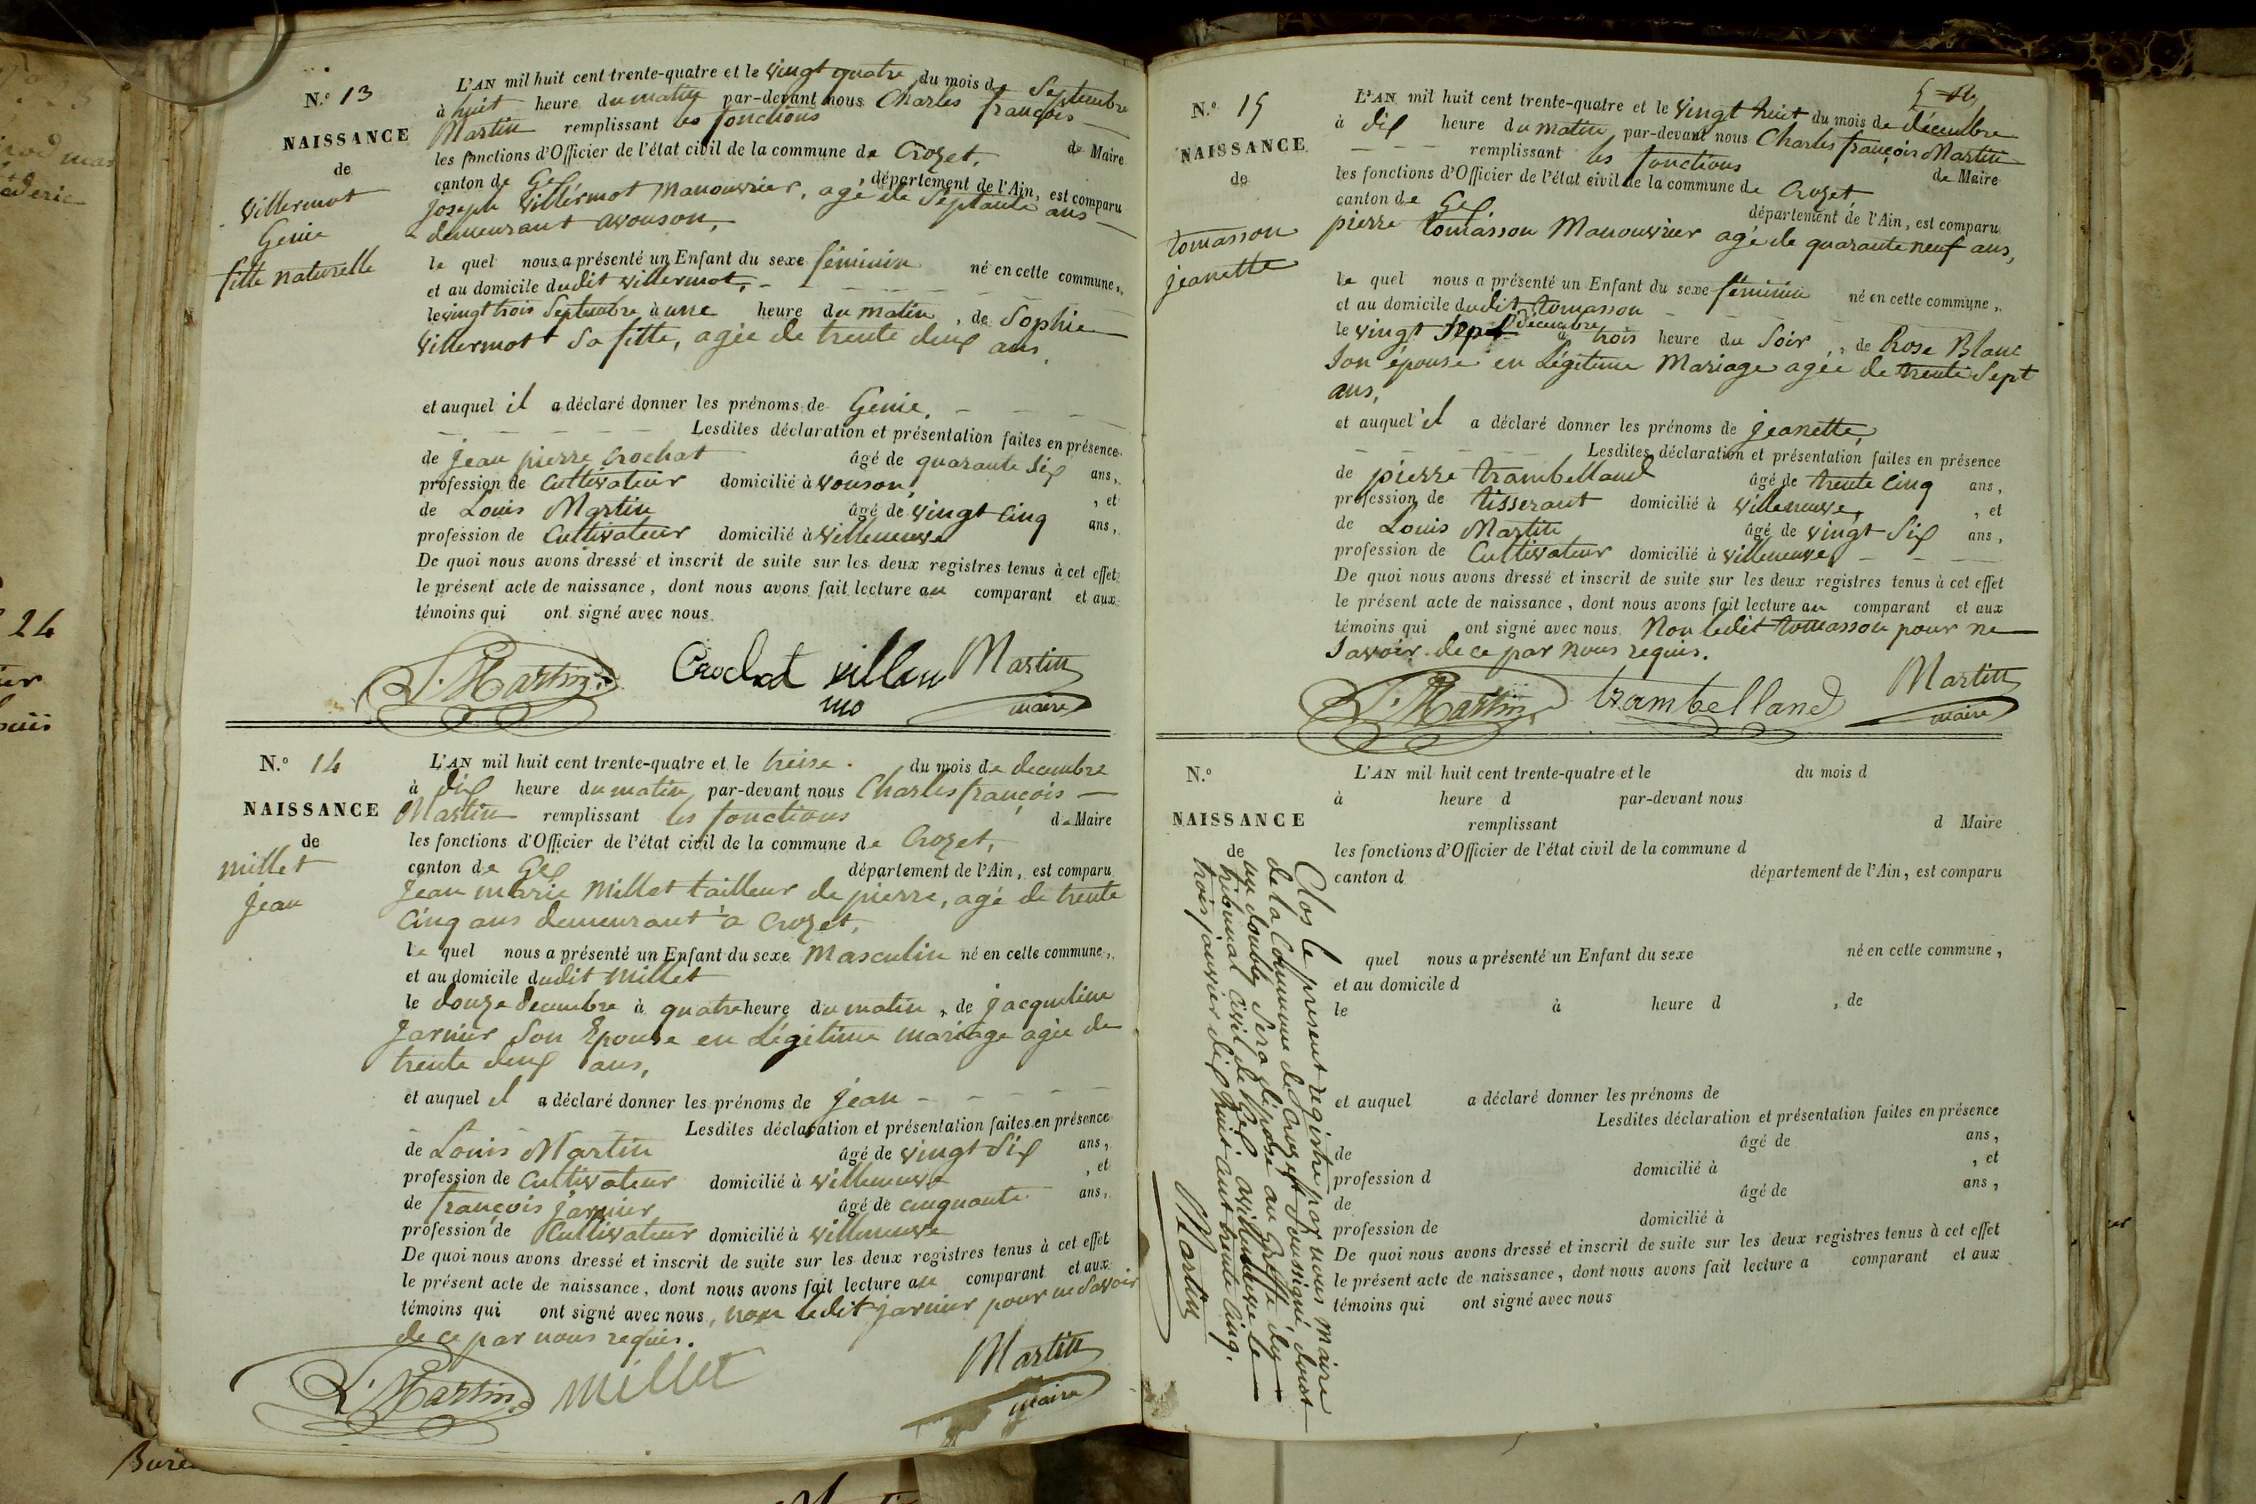 N.º 13
NAISSANCE
de
Villermot
Genie
fille naturelle
L'AN mil huit cent trente-quatre et le vingt quatre du mois de Septembre
à huit heure du matin par-devant nous Charles françois
Martin remplissant les fonctions de Maire
les fonctions d'Officier de l'état civil de la commune de Crozet,
canton de Gex, département de l'Ain, est comparu
Joseph Villermot Manouvrier, agé de Septante ans
demeurant avouson,
le quel nous a présenté un Enfant du sexe féminin né en cette commune,
et au domicile dudit villermot,
le vingt trois Septembre à une heure du matin, de Sophie
Villermot Sa fille, agée de trente deux ans,
et auquel il a déclaré donner les prénoms de Genie,
Lesdites déclaration et présentation faites en présence
de jean pierre Crochat âgé de quarante Six ans,
profession de Cultivateur domicilié à vouson, , et
de Louis Martin âgé de vingt Cinq ans,
profession de Cultivateur domicilié à Villeneuve
De quoi nous avons dressé et inscrit de suite sur les deux registres tenus à cet effet
le présent acte de naissance, dont nous avons fait lecture au comparant et aux
témoins qui ont signé avec nous
L. Martin Crochat villermo Martin
maire
N.º 14
NAISSANCE
de
millet
jean
L'AN mil huit cent trente-quatre et le treise du mois de decembre
à dix heure du matin par-devant nous Charles françois
Martin remplissant les fonctions de Maire
les fonctions d'Officier de l'état civil de la commune de Crozet,
canton de Gex département de l'Ain, est comparu
Jean marie Millet tailleur de pierre, agé de trente
Cinq ans demeurant a Crozet,
le quel nous a présenté un Enfant du sexe Masculin né en cette commune,
et au domicile dudit Millet
le douze decembre à quatre heure du matin, de jacqueline
Jarnier Son Epouse en Légitime mariage agée de
trente deux ans,
et auquel il a déclaré donner les prénoms de jean
Lesdites déclaration et présentation faites en présence
de Louis Martin âgé de vingt Six ans,
profession de Cultivateur domicilié à Villeneuve , et
de françois jarnier âgé de cinquante ans,
profession de Cultivateur domicilié à villeneuve
De quoi nous avons dressé et inscrit de suite sur les deux registres tenus à cet effet
le présent acte de naissance, dont nous avons fait lecture au comparant et aux
témoins qui ont signé avec nous, non ledit jarnier pour ne Savoir
de ce par nous requis.
L. Martin Millet Martin
maire
N.º 15
NAISSANCE
de
tomasson
jeanette
L'AN mil huit cent trente-quatre et le vingt huit du mois de décembre
à dix heure du matin par-devant nous Charles françois Martin
remplissant les fonctions de Maire
les fonctions d'Officier de l'état civil de la commune de Crozet,
canton de Gex département de l'Ain, est comparu
pierre tomasson Manouvrier agé de quarante neuf ans,
le quel nous a présenté un Enfant du sexe féminin né en cette commune,
et au domicile dudit tomasson
le vingt Sept décembre à trois heure du Soir, de Rose Blanc
Son épouse en Légitime Mariage agée de trente Sept
ans,
et auquel il a déclaré donner les prénoms de jeanette,
Lesdites déclaration et présentation faites en présence
de pierre trambelland âgé de trente Cinq ans,
profession de tisserant domicilié à villeneuve, , et
de Louis Martin âgé de vingt Six ans,
profession de Cultivateur domicilié à villeneuve,
De quoi nous avons dressé et inscrit de suite sur les deux registres tenus à cet effet
le présent acte de naissance, dont nous avons fait lecture au comparant et aux
témoins qui ont signé avec nous Non ledit tomasson pour ne
Savoir de ce par nous requis.
L. Martin trambelland Martin
maire
N.º
NAISSANCE
de
L'AN mil huit cent trente-quatre et le du mois d
à heure d par-devant nous
remplissant d Maire
les fonctions d'Officier de l'état civil de la commune d
canton d département de l'Ain, est comparu
quel nous a présenté un Enfant du sexe né en cette commune,
et au domicile d
le à heure d , de
et auquel a déclaré donner les prénoms de
Lesdites déclaration et présentation faites en présence
de âgé de ans,
profession d domicilié à , et
de âgé de ans,
profession de domicilié à
De quoi nous avons dressé et inscrit de suite sur les deux registres tenus à cet effet
le présent acte de naissance, dont nous avons fait lecture a comparant et aux
témoins qui ont signé avec nous
Clos le present registre par nous Maire
de la Commune de Crozet Soussigné, dont
un double Sera déposé au Greffe du
tribunal Civil de Gex a villeneuve le
trois janvier dix huit cent trente cinq.
Martin
24